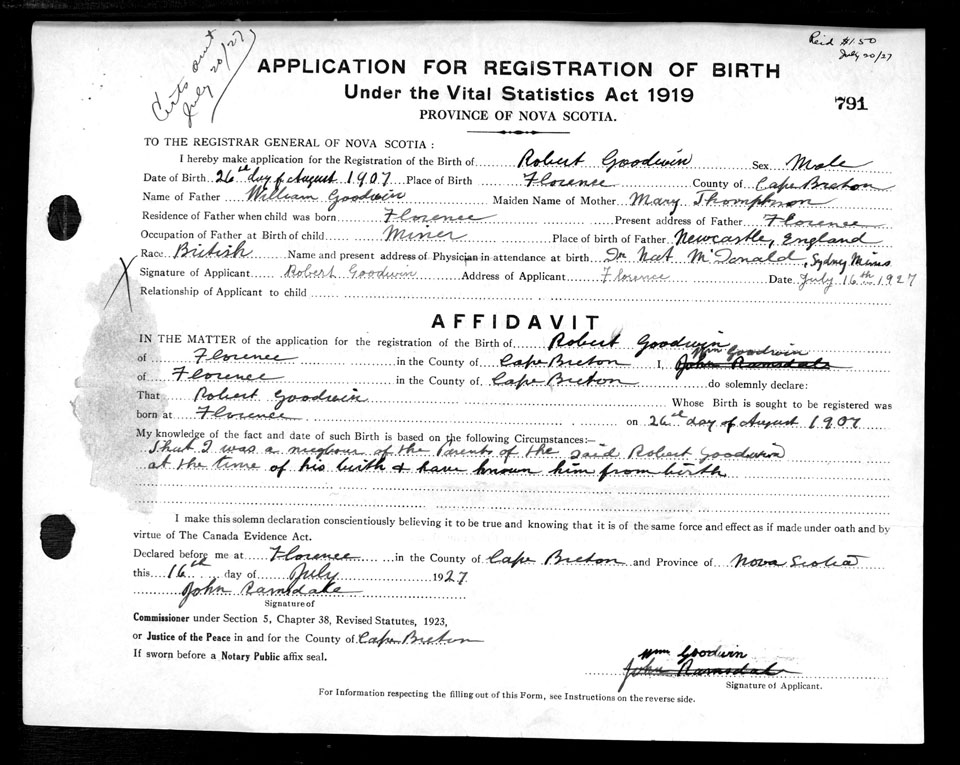 Certs out
July 20/27
Reid $1.50
July 20/27
APPLICATION FOR REGISTRATION OF BIRTH
Under the Vital Statistics Act 1919
PROVINCE OF NOVA SCOTIA.
791
TO THE REGISTRAR GENERAL OF NOVA SCOTIA :
I hereby make application for the Registration of the Birth of Robert Goodwin Sex Male
Date of Birth 26th day of August 1907 Place of Birth Florence County of Cape Breton
Name of Father William Goodwin Maiden Name of Mother Mary Thompson
Residence of Father when child was born Florence Present address of Father Florence
Occupation of Father at Birth of child Miner Place of birth of Father Newcastle, England
Race British Name and present address of Physician in attendance at birth Dr Nat McDonald, Sydney Mines
Signature of Applicant Robert Goodwin Address of Applicant Florence Date July 16th 1927
Relationship of Applicant to child
AFFIDAVIT
IN THE MATTER of the application for the registration of the Birth of Robert Goodwin
Wm Goodwin
of Florence in the County of Cape Breton I, John Ramsdale
of Florence in the County of Cape Breton do solemnly declare:
That Robert Goodwin Whose Birth is sought to be registered was
born at Florence on 26th day of August 1907
My knowledge of the fact and date of such Birth is based on the following Circumstances:—
That I was a neighour of the Parents of the said Robert Goodwin
at the time of his birth & have known him from birth
I make this solemn declaration conscientiously believing it to be true and knowing that it is of the same force and effect as if made under oath and by
virtue of The Canada Evidence Act.
Declared before me at Florence in the County of Cape Breton and Province of Nova Scotia
this 16th day of July 1927
John Ramsdale
Signature of
Commissioner under Section 5, Chapter 38, Revised Statutes, 1923,
or Justice of the Peace in and for the County of Cape Breton
If sworn before a Notary Public affix seal.
Wm Goodwin
John Ramsdale
Signature of Applicant.
For Information respecting the filling out of this Form, see Instructions on the reverse side.